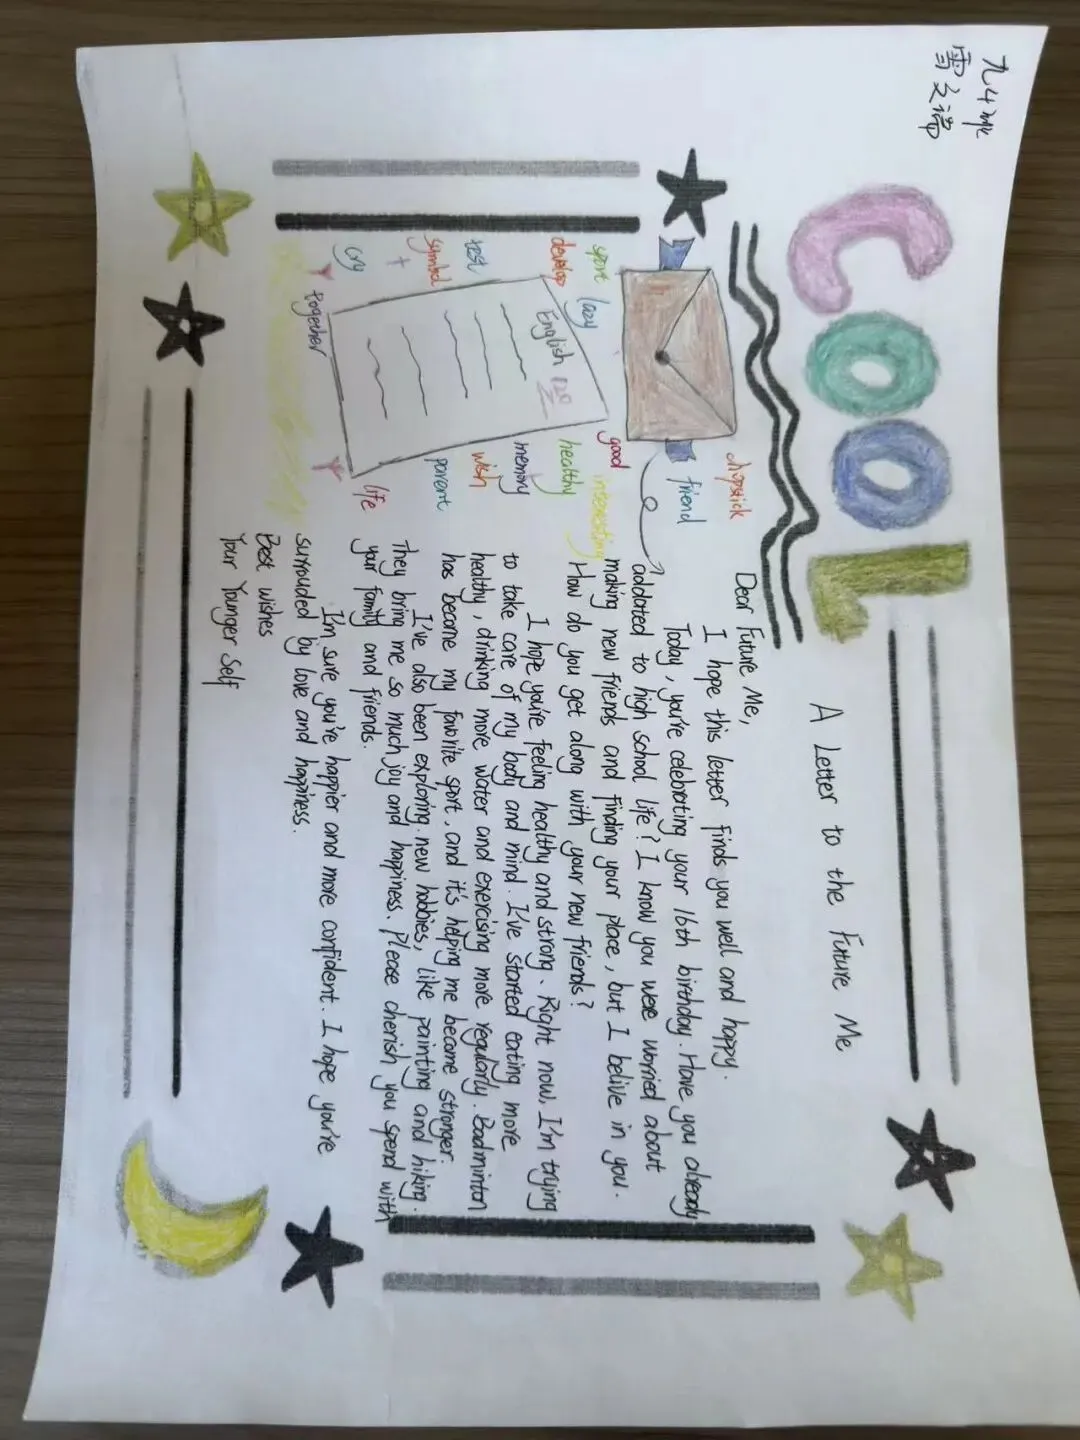 九4班
雷文瑞
COOL
A Letter to the Future Me
Dear Future Me,
I hope this letter finds you well and happy.
Today, you're celebrating your 16th birthday. Have you already
addated to high school life? I know you were worried about
making new friends and finding your place, but I belive in you.
How do you get along with your new friends?
I hope you're feeling healthy and strong. Right now, I'm trying
to take care of my body and mind. I've started eating more
healthy, drinking more water and exercising more regularly. Badminton
has become my favorite sport, and it's helping me become stronger.
I've also been exploring new hobbies, like painting and hiking.
They bring me so much joy and happiness. Please cherish you spend with
your family and friends.
I'm sure you're happier and more confident. I hope you're
surrouded by love and happiness.
Best wishes
Your Younger Self
chopstick
friend
good
interesting
healthy
memory
wish
parent
life
sport
lazy
develop
test
symbol
cry
together
English 120